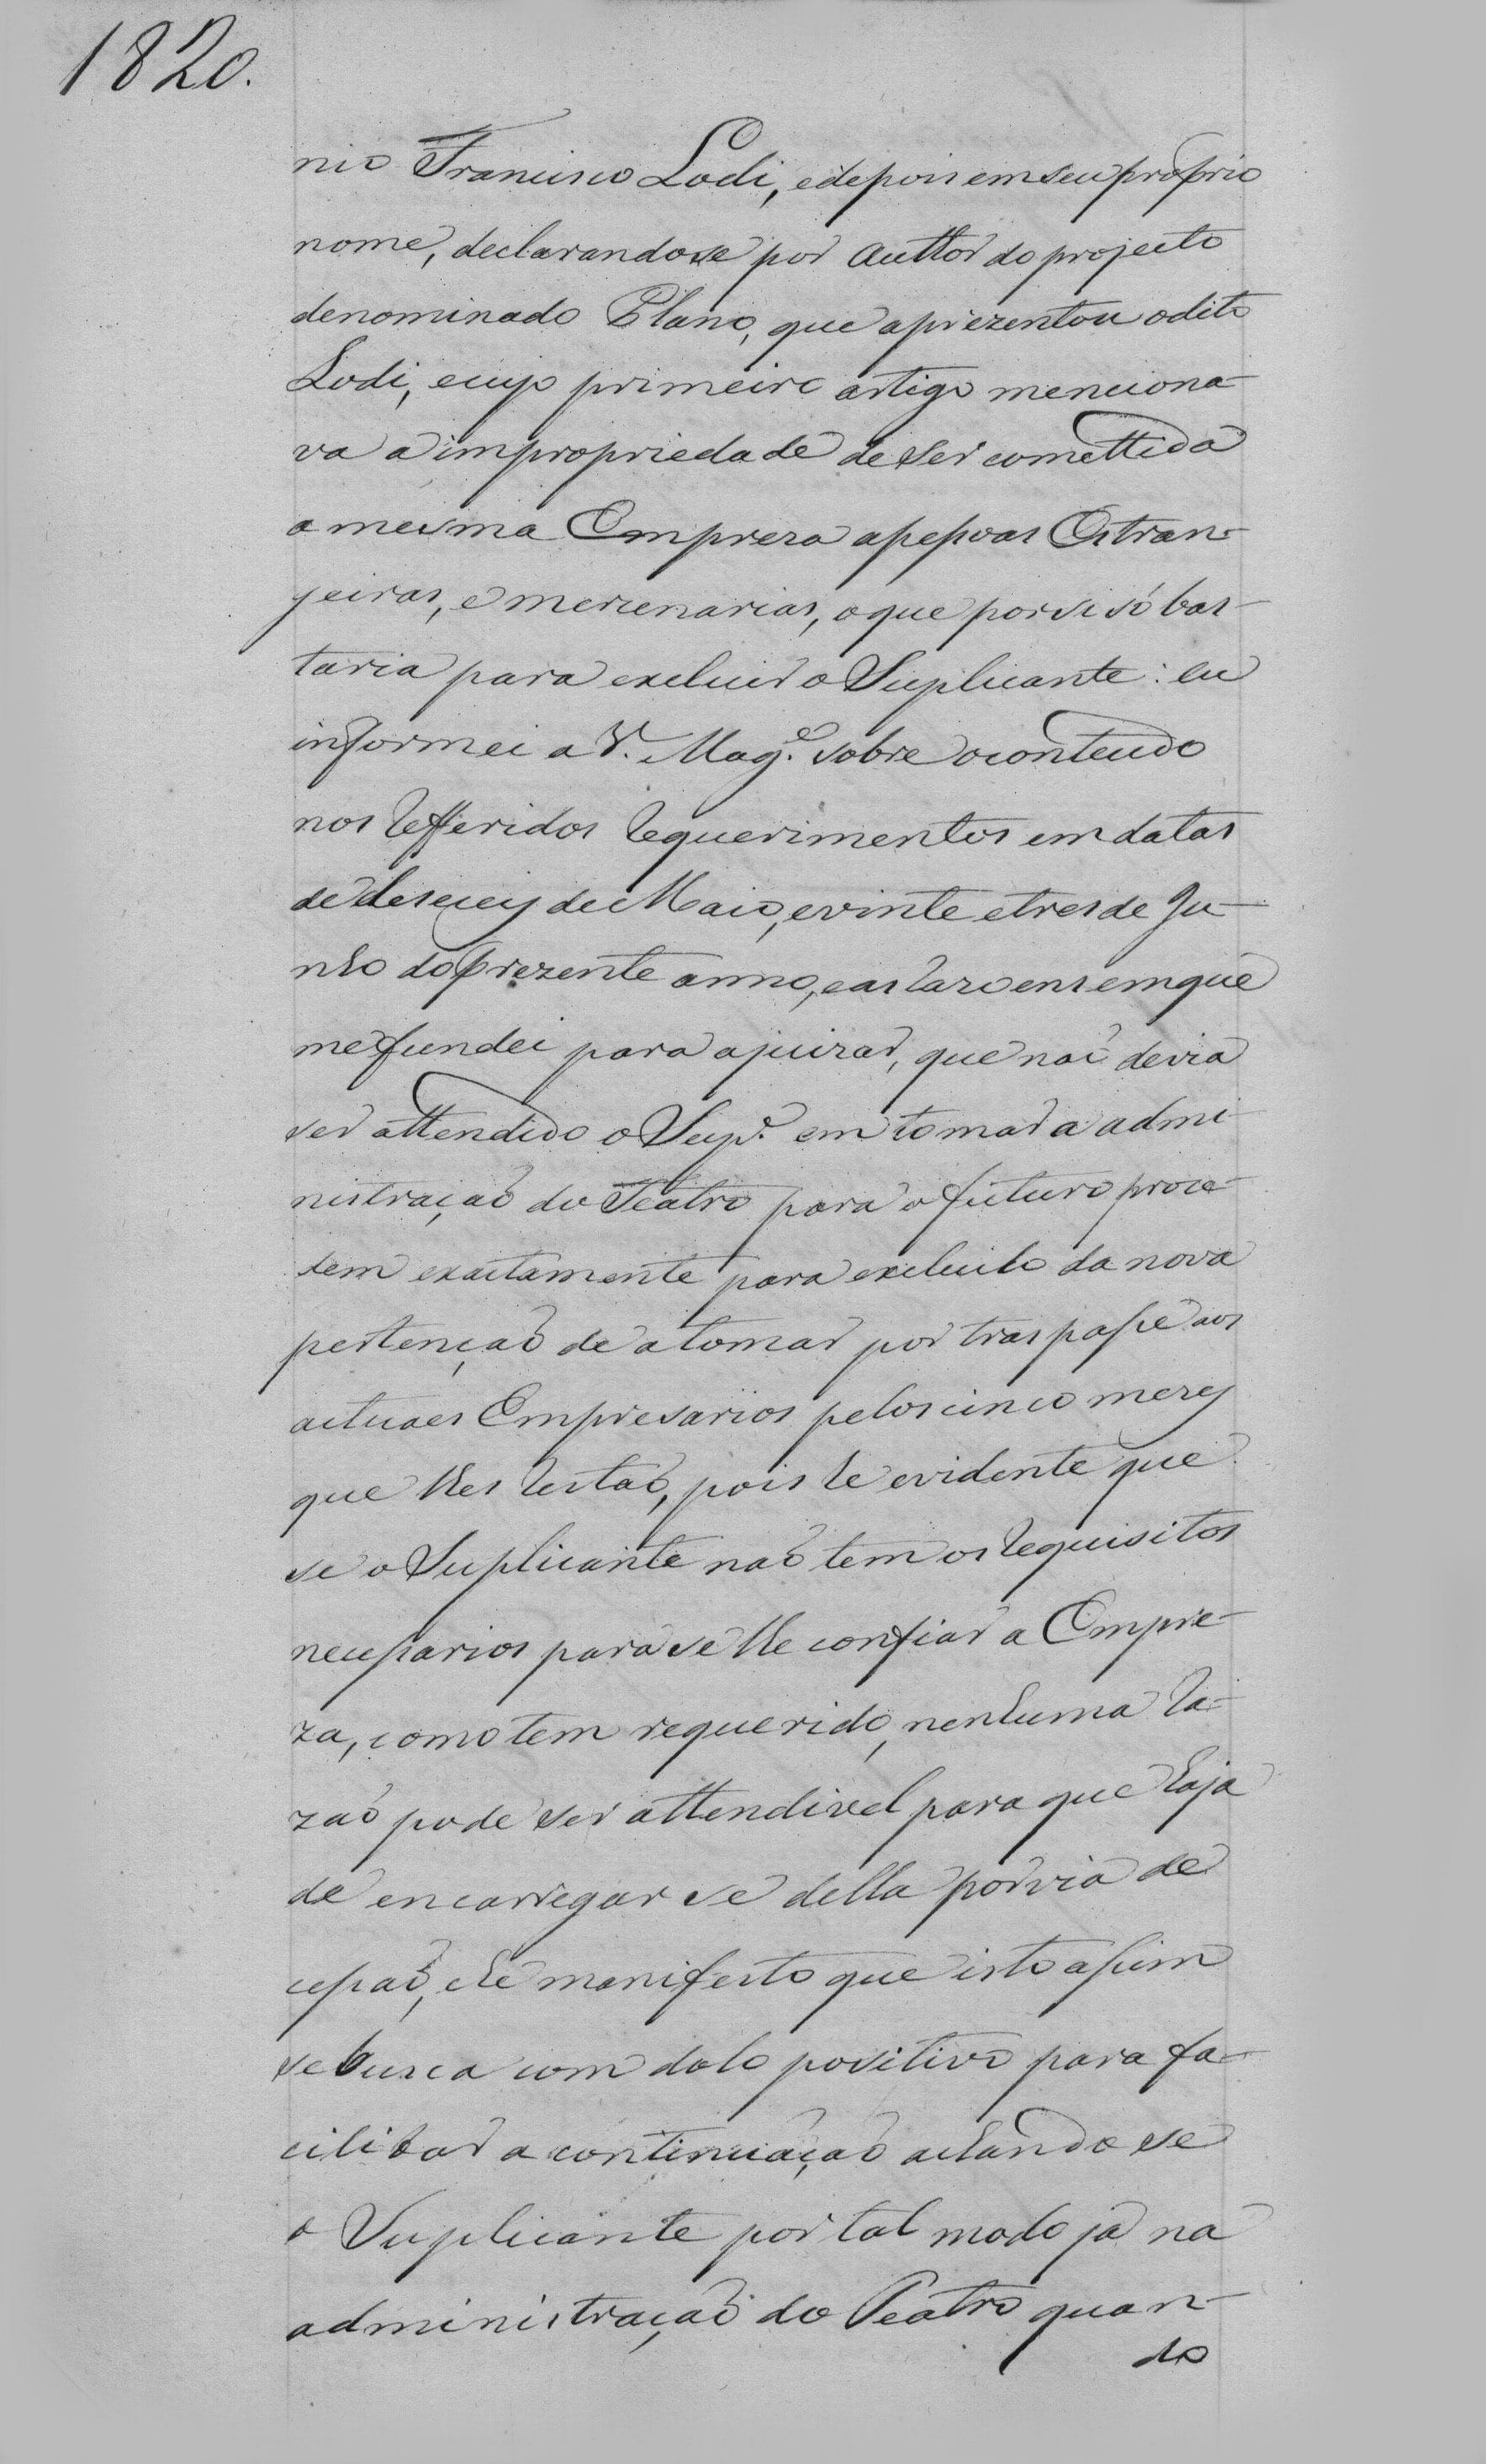 1820.
nio Francisco Lodi, e depois em seu proprio
nome, declarandose por Author do projecto
denominado Plano, que aprezentou o dito
Lodi, cujo primeiro artigo menciona-
va a impropriedade de ser comettida
a mesma Empreza a pessoas Estran-
jeiras, e mercenarias, o que por si só bas-
taria para excluir o Suplicante: eu
informei a V. Mag.e sobre o conteudo
nos Refferidos Requerimentos em datas
de deseceis de Maio, e vinte e tres de Ju-
nho do prezente anno, e as Razoens em que
me fundei para ajuizar, que naõ devia
ser attendido o Sup.e em tomar a admi-
nistraçaõ do Teatro para o futuro proce-
dem exactamente para excluilo da nova
pertençaõ de a tomar por traspasse aos
actuaes Empresarios pelos cinco mezes
que lhes Restaõ, pois he evidente que
se o Suplicante naõ tem os Requisitos
necessarios para se lhe confiar a Empre-
za, como tem requerido, nenhuma Ra-
zaõ pode ser attendivel para que haja
de encarregar se della por via de
cessaõ, e he manifesto que isto assim
se busca com dolo positivo para fa-
cilitar a continuaçaõ achando se
o Suplicante por tal modo já na
administraçaõ do Teatro quan-
do